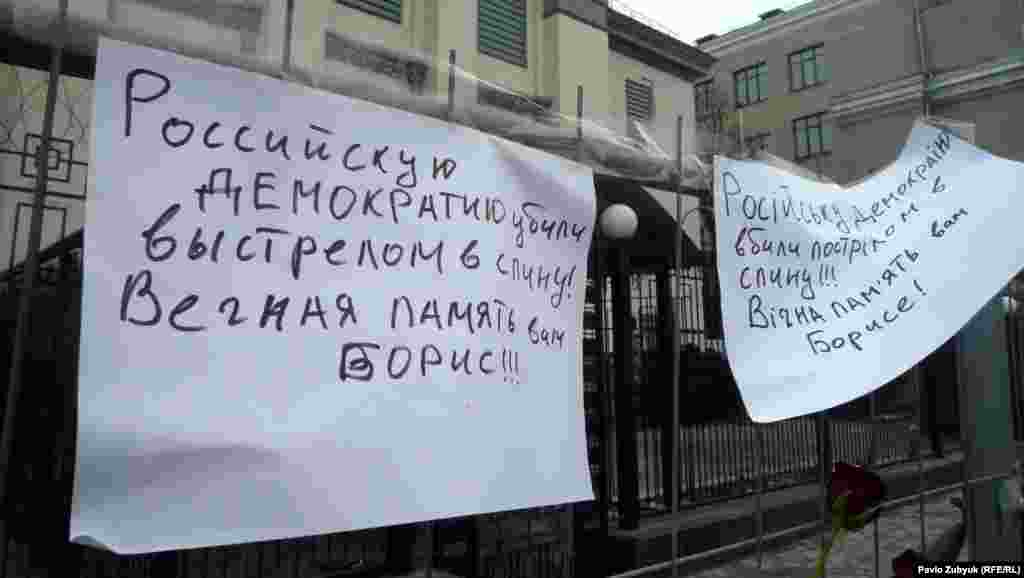 Российскую
ДЕМОКРАТИЮ убили
выстрелом в спину!
Вечная ПАМЯТЬ вам
БОРИС!!!
Російську демократію
вбили пострілом в
спину!!!
Вічна пам'ять вам
Борисе!
Pavlo Zubyuk (RFE/RL)